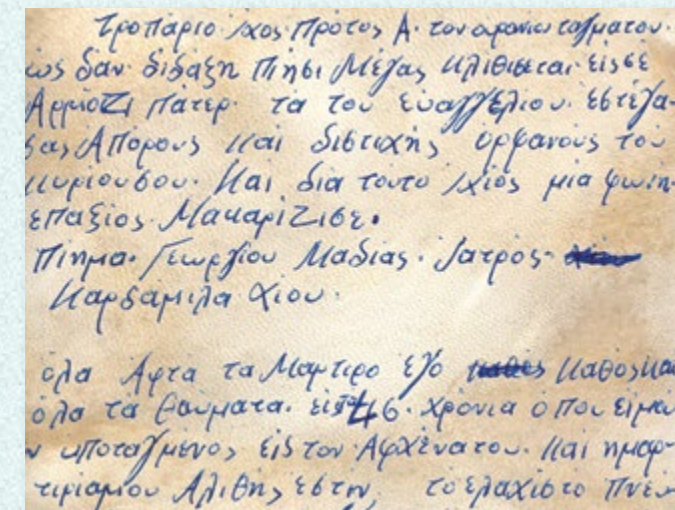 Τροπάριο ήχος Πρότος Α. τον ουρανιω ταγματον.
ως δαν διδαξη Πιήσι Μέγας Κλιθισεται είς σε
Αρμοζι Πάτερ. τα του ευαγγελιου. εστέγα-
σας Απορους Και διστιχής ορφανους του
κυριου σου. Και δια τουτο Χίος μια φωνη.
επαξίος Μακαρίζισε.
Πιημα. Γεωργίου Μαδιας. Ιατρός.
Καρδαμιλα Χίου.
όλα Αφτα τα Μαρτιρο έγο Καθος και
όλα τα θαυματα. είς 46. χρονια όπου είμαι
υποταγμενος είς τον Αφχένατου. Και ημαρ-
τιριαμου Αλιθής έστην, το ελαχίστο Πνευ